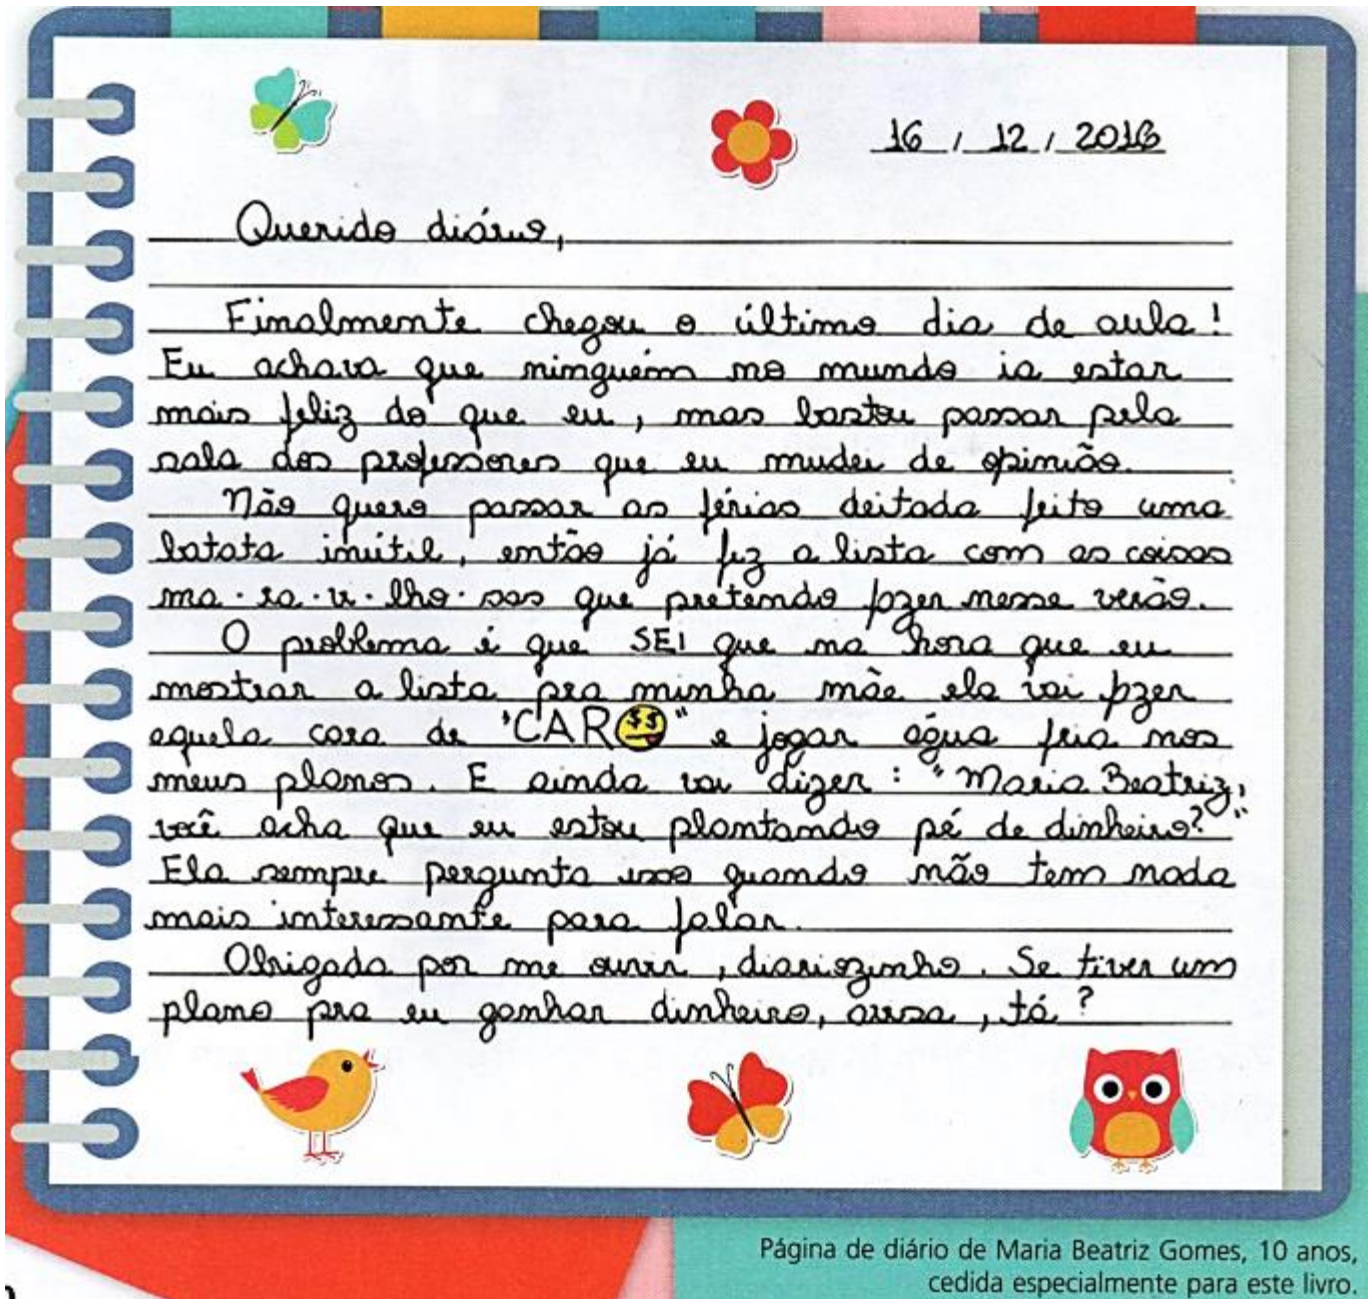 16 / 12 / 2016
Querido diário,
Finalmente chegou o último dia de aula!
Eu achava que ninguém no mundo ia estar
mais feliz do que eu, mas bastou passar pela
sala dos professores que eu mudei de opinião.
Não quero passar as férias deitada feito uma
batata inútil, então já fiz a lista com as coisas
ma-ra-vi-lho-sas que pretendo fazer nesse verão.
O problema é que SEI que na hora que eu
mostrar a lista pra minha mãe ela vai fazer
aquela cara de "CAR🤑" e jogar água fria nos
meus planos. E ainda vai dizer: "Maria Beatriz,
você acha que eu estou plantando pé de dinheiro?"
Ela sempre pergunta isso quando não tem nada
mais interessante para falar.
Obrigada por me ouvir, diariozinho. Se tiver um
plano pra eu ganhar dinheiro, avisa, tá?
Página de diário de Maria Beatriz Gomes, 10 anos,
cedida especialmente para este livro.